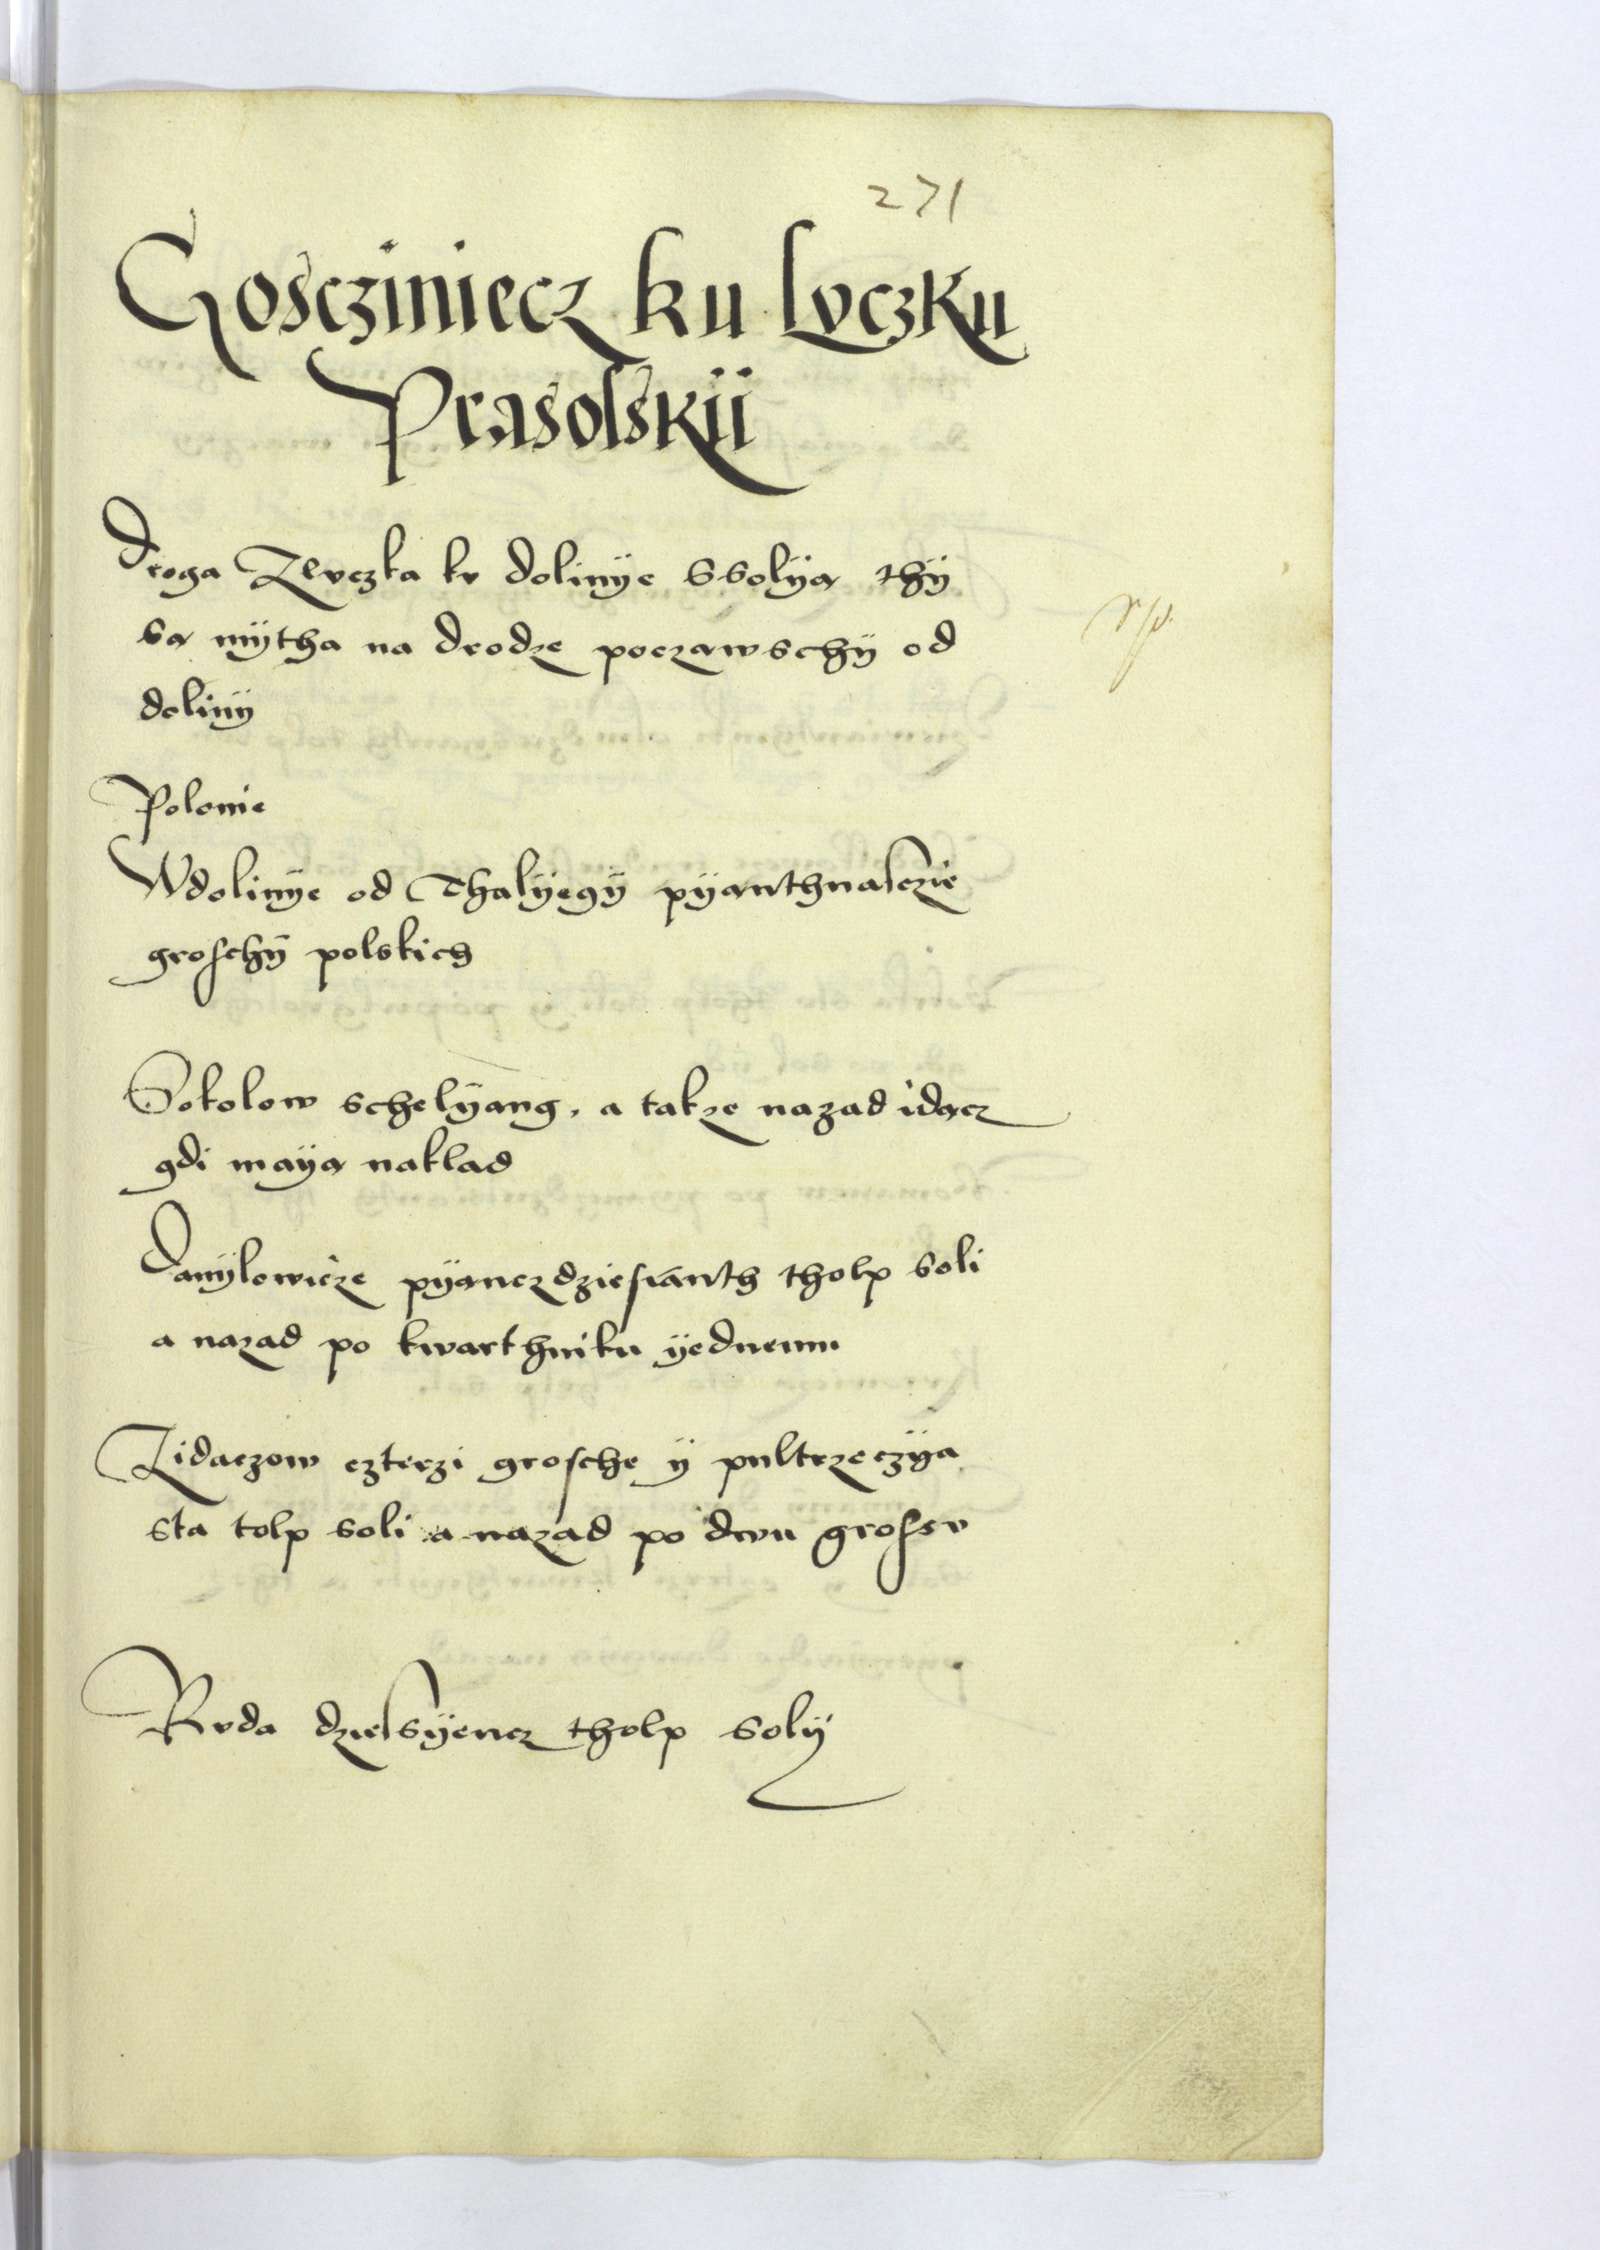 271
Goscziniecz ku Lvczku
Prasolskii
Droga Zlvczka kv dolinÿe Ssolÿa thÿ
sa mÿtha na drodze poczawschÿ od
dolinÿ
Polonie
Wdolinÿe od Thalÿegÿ pÿanthnasczie
groschÿ polskich
Sokolow schelÿang, a takze nazad idacz
gdi maÿa naklad
Danÿlowicze pÿanczdziesianth tholp soli
a nazad po kwarthniku ÿednemu
Zidaczow czterzi grosche ÿ pultrzeczÿa
sta tolp soli a nazad po dwu grossv
Rvda dziesÿencz tholp solÿ